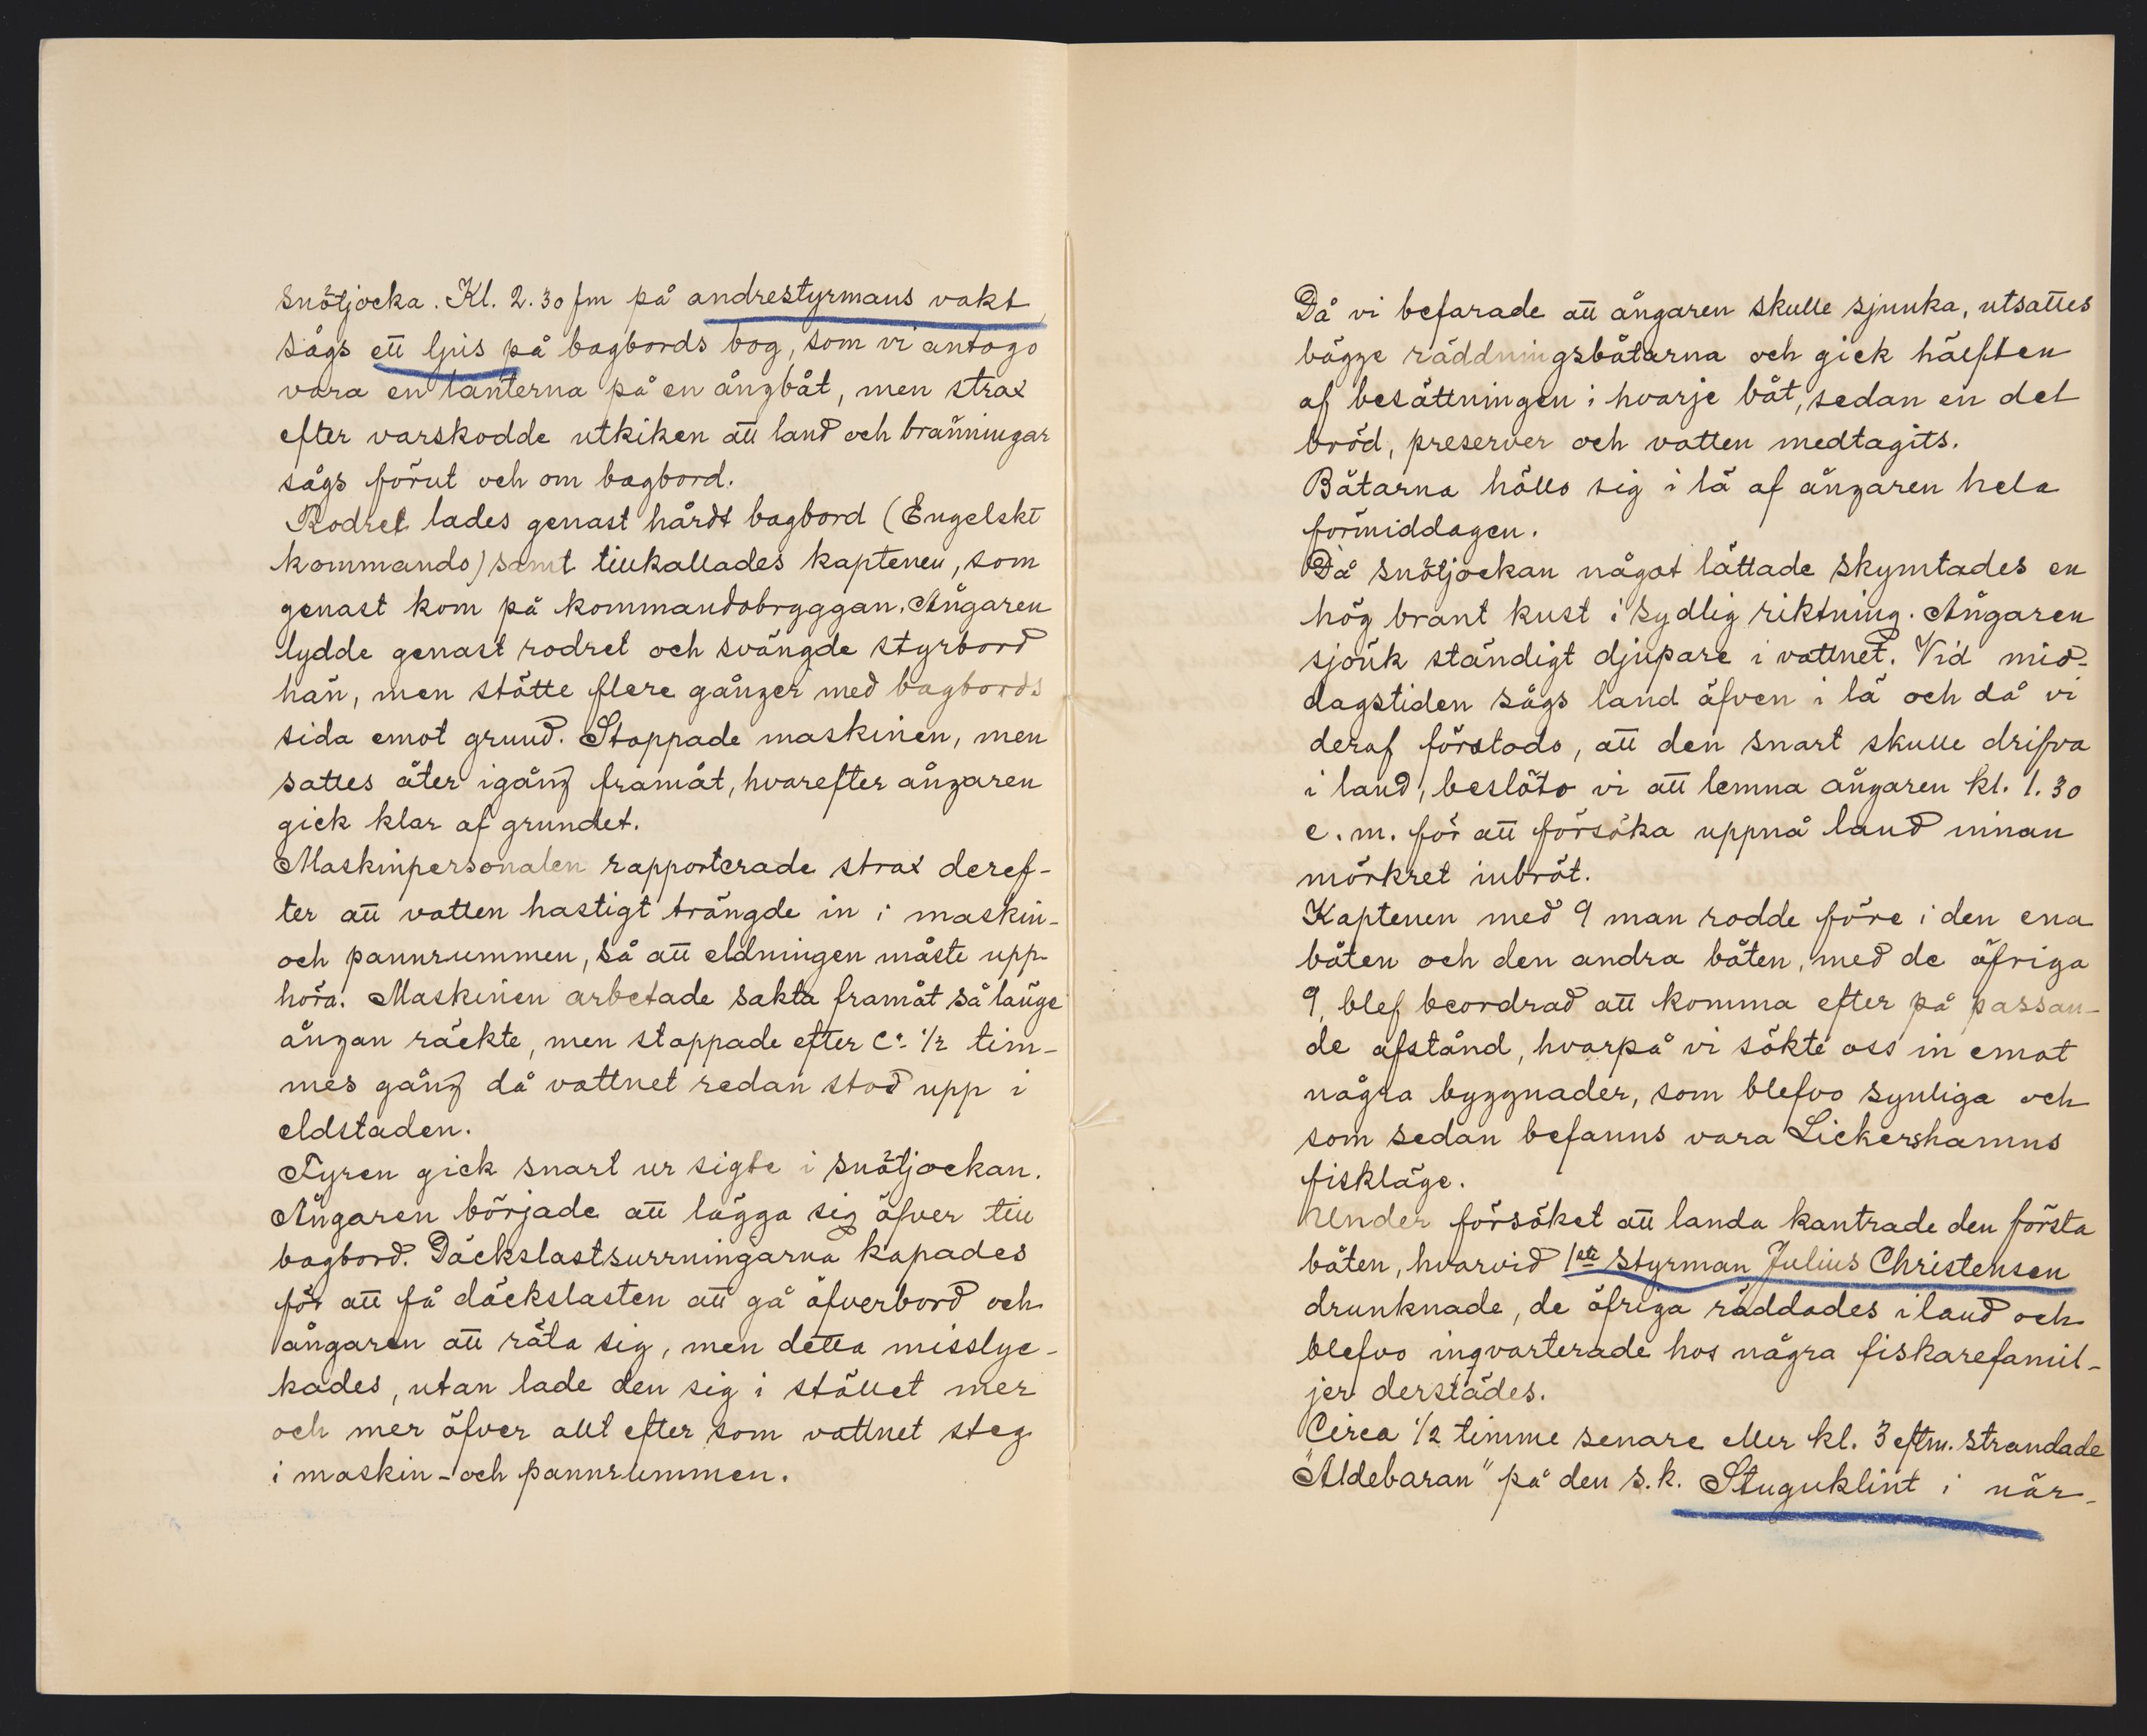 snötjocka. Kl. 2.30 fm på andrestyrmans vakt
sågs ett ljus på bagbords bog, som vi antogo
vara en lanterna på en ångbåt, men strax
efter varskodde utkiken att land och bränningar
sågs förut och om bagbord.
Rodret lades genast hårdt bagbord (Engelskt
kommando) samt tillkallades kaptenen, som
genast kom på kommandobrygggan. Ångaren
lydde genast rodret och svängde styrbord
hän, men stötte flere gånger med bagbords
sida emot grund. Stoppade maskinen, men
sattes åter igång framåt, hvarefter ångaren
gick klar af grundet.
Maskinpersonalen rapporterade strax deref-
ter att vatten hastigt trängde in i maskin-
och pannrummen, så att eldningen måste upp-
höra. Maskinen arbetade sakta framåt så länge
ångan räckte, men stoppade efter Ca 1/2 tim-
mes gång då vattnet redan stod upp i
eldstaden.
Fyren gick snart ur sigte i snötjockan.
Ångaren började att lägga sig öfver till
bagbord. Däckslastsurrningarna kapades
för att få däckslasten att gå öfverbord och
ångaren att räta sig, men detta misslyc-
kades, utan lade den sig i stället mer
och mer öfver allt efter som vattnet steg
i maskin- och pannrummen.
Då vi befarade att ångaren skulle sjunka, utsattes
bägge räddningsbåtarna och gick hälften
af besättningen i hvarje båt, sedan en del
bröd, preserver och vatten medtagits.
Båtarna höllo sig i lä af ångaren hela
förmiddagen.
Då snötjockan något lättade skymtades en
hög brant kust i sydlig riktning. Ångaren
sjönk ständigt djupare i vattnet. Vid mid-
dagstiden sågs land äfven i lä och då vi
deraf förstodo, att den snart skulle drifva
i land, beslöto vi att lemna ångaren kl. 1.30
e.m. för att försöka uppnå land innan
mörkret inbröt.
Kaptenen med 9 man rodde före i den ena
båten och den andra båten, med de öfriga
9, blef beordrad att komma efter på passan-
de afstånd, hvarpå vi sökte oss in emot
några byggnader, som blefvo synliga och
som sedan befanns vara Lickershamns
fiskläge.
Under försöket att landa kantrade den första
båten, hvarvid 1ste styrman Julius Christensen
drunknade, de öfriga räddades i land och
blefvo inqvarterade hos några fiskarefamil-
jer derstädes.
Circa 1/2 timme senare eller kl. 3 eftm. strandade
"Aldebaran" på den s.k. Stuguklint i när-